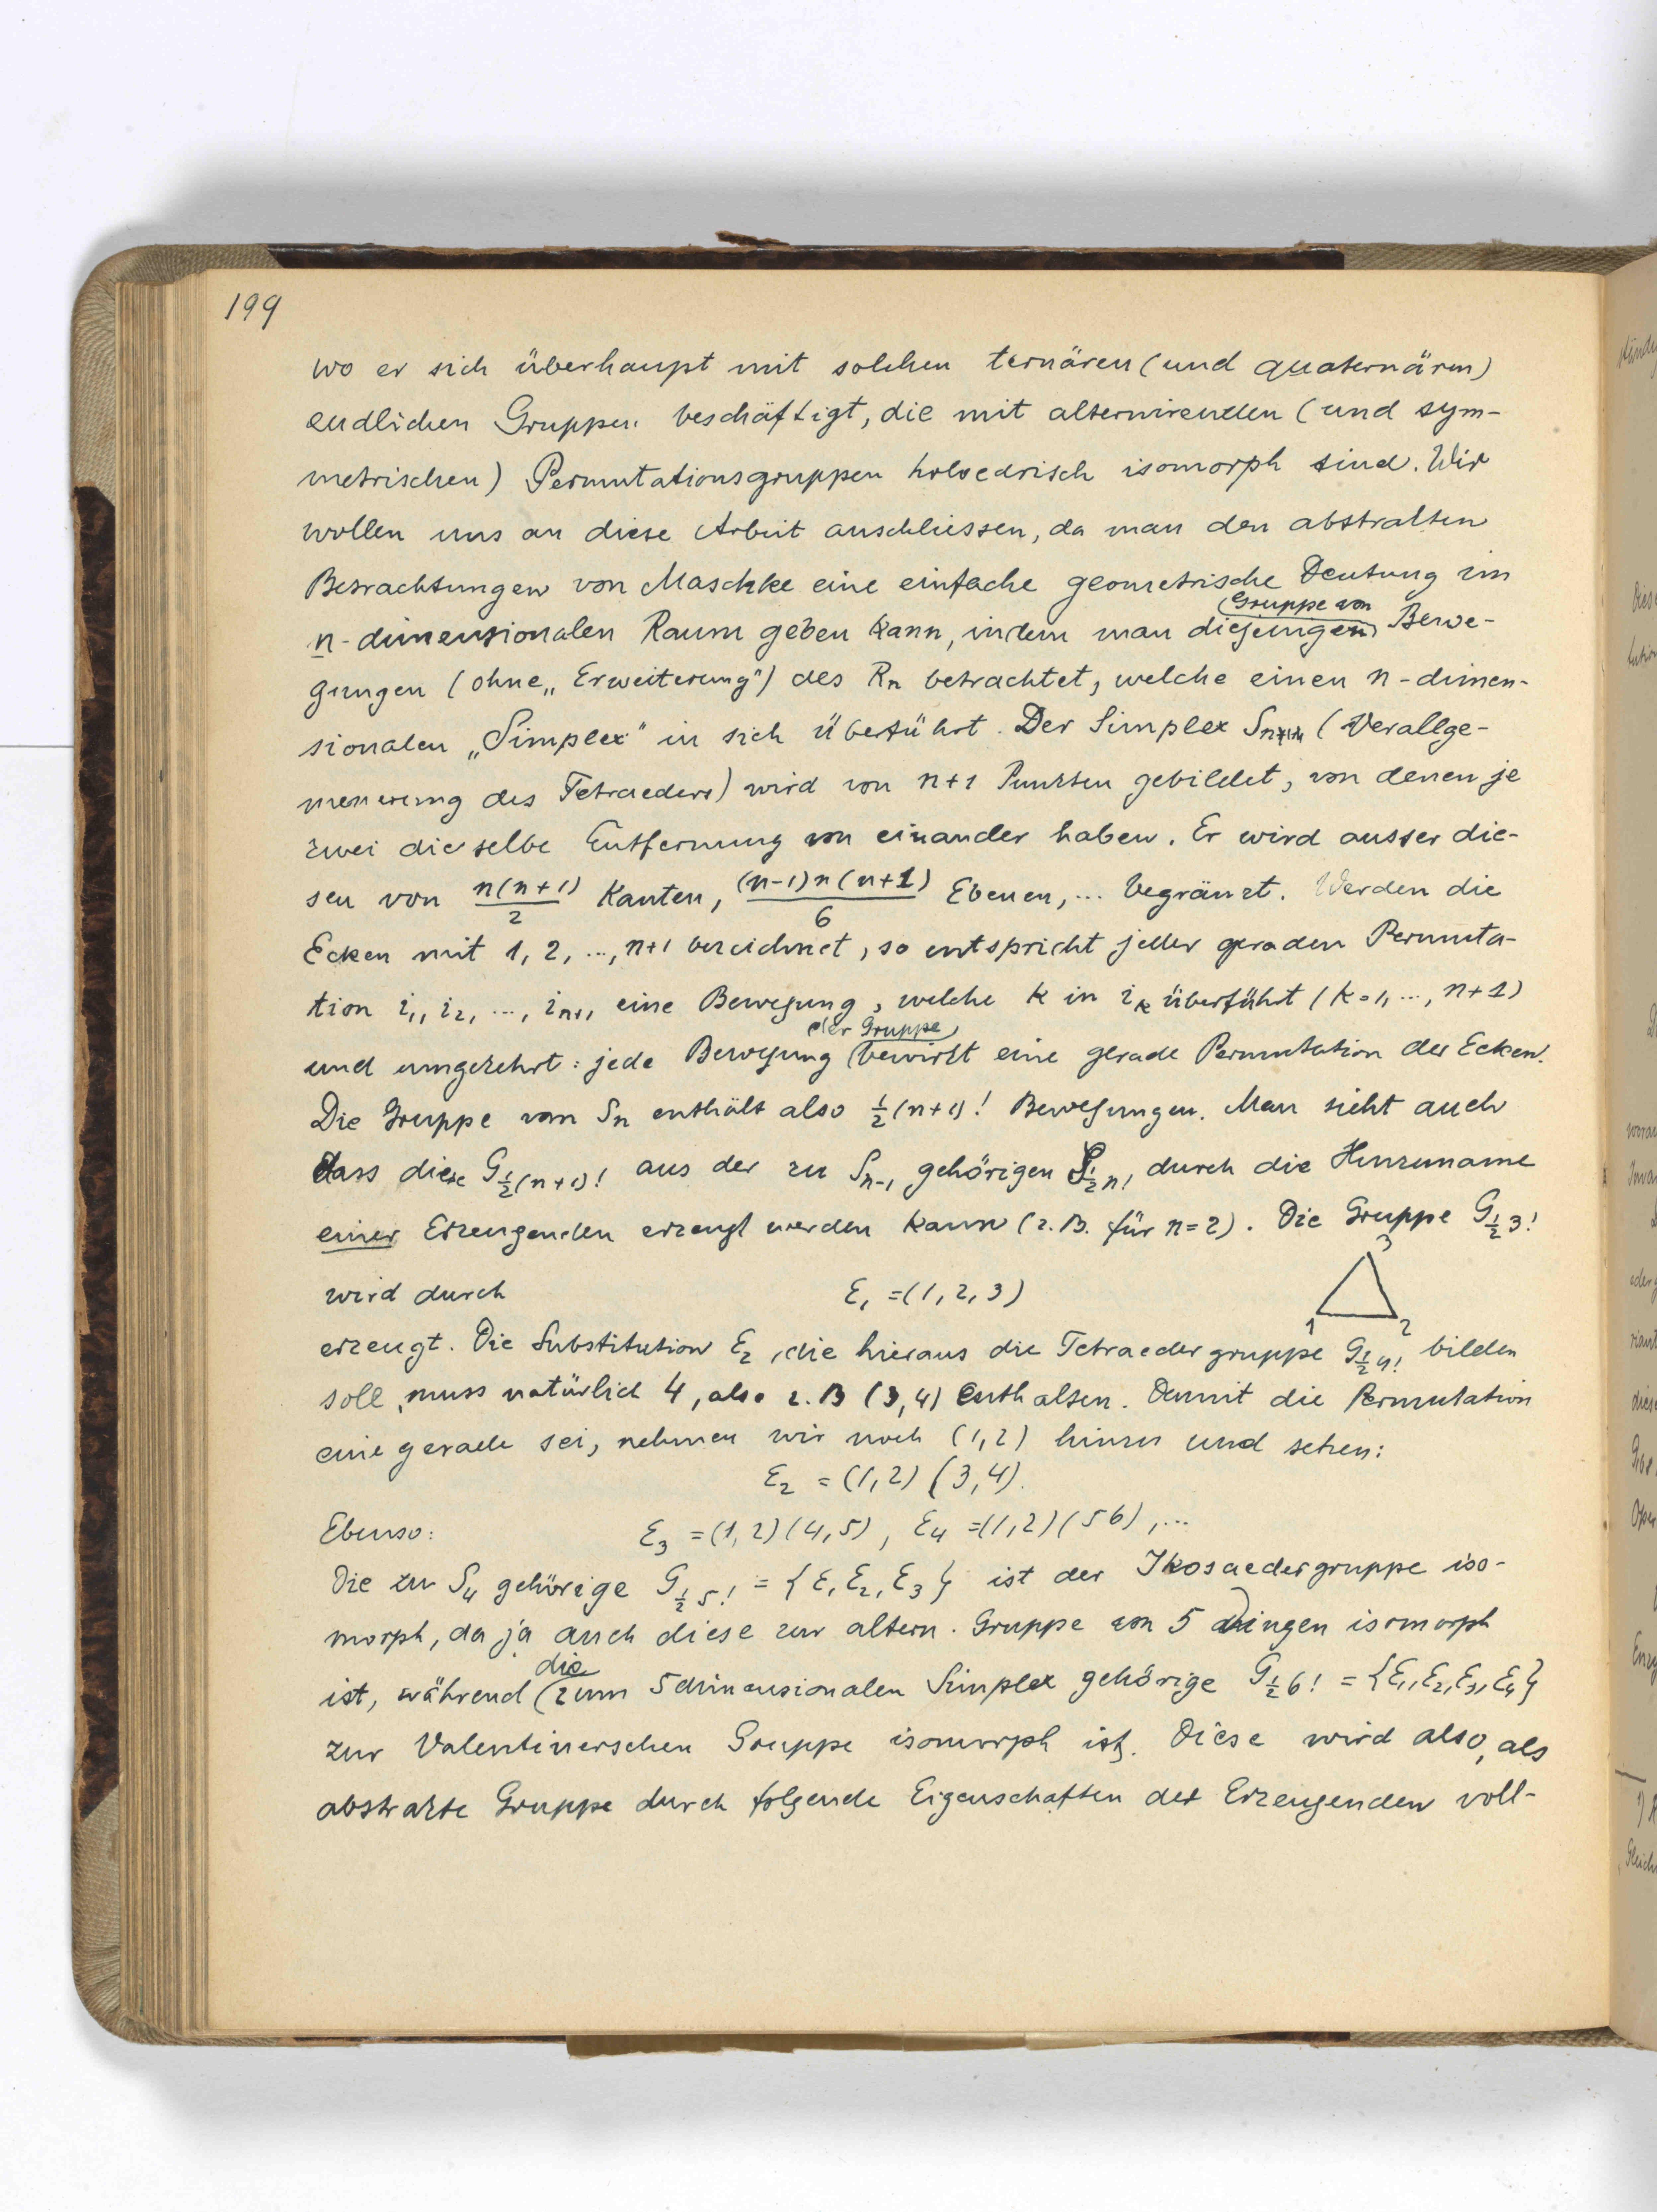 199
wo er sich überhaupt mit solchen ternären (und quaternären)
endlichen Gruppen beschäftigt, die mit alternirenden (und sym-
metrischen) Permutationsgruppen holoedrisch isomorph sind. Wir
wollen uns an diese Arbeit anschliessen, da man den abstrakten
Betrachtungen von Maschke eine einfache geometrische Deutung im
Gruppe von
n-dimensionalen Raum geben kann, indem man diejenigen Bewe-
gungen (ohne „Erweiterung") des Rn betrachtet, welche einen n-dimen-
sionalen „Simplex" in sich überführt. Der Simplex Sn (Verallge-
meinerung des Tetraeders) wird von n+1 Punkten gebildet, von denen je
zwei dieselbe Entfernung von einander haben. Er wird ausser die-
sen von n(n+1)/2 Kanten, (n-1)n(n+1)/6 Ebenen, ... begränzt. Werden die
Ecken mit 1, 2, ..., n+1 bezeichnet, so entspricht jeder geraden Permuta-
tion i₁, i₂, ..., iₙ₊₁ eine Bewegung, welche k in iₖ überführt (k=1, ..., n+1)
der Gruppe
und umgekehrt: jede Bewegung bewirkt eine gerade Permutation der Ecken.
Die Gruppe von Sn enthält also ½(n+1)! Bewegungen. Man sieht auch
dass diese G½(n+1)! aus der zu Sn-1 gehörigen G½n! durch die Hinzuname
einer Erzeugenden erzeugt werden kann (z.B. für n=2). Die Gruppe G½3!
3
wird durch ε₁ =(1, 2, 3)
1 2
erzeugt. Die Substitution ε₂, die hieraus die Tetraedergruppe G½4! bilden
soll, muss natürlich 4, also z.B (3,4) enthalten. Damit die Permutation
eine gerade sei, nehmen wir noch (1,2) hinzu und setzen:
ε₂ = (1,2) (3,4).
Ebenso: ε₃ =(1,2)(4,5), ε₄ =(1,2)(56), ...
Die zu S₄ gehörige G½5! = {ε₁ ε₂, ε₃} ist der Ikosaedergruppe iso-
morph, da ja auch diese zur altern. Gruppe von 5 Dingen isomorph
die
ist, während zum 5dimensionalen Simplex gehörige G½6! = {ε₁, ε₂, ε₃, ε₄}
zur Valentinerschen Gruppe isomorph ist. Diese wird also, als
abstrakte Gruppe durch folgende Eigenschaften der Erzeugenden voll-